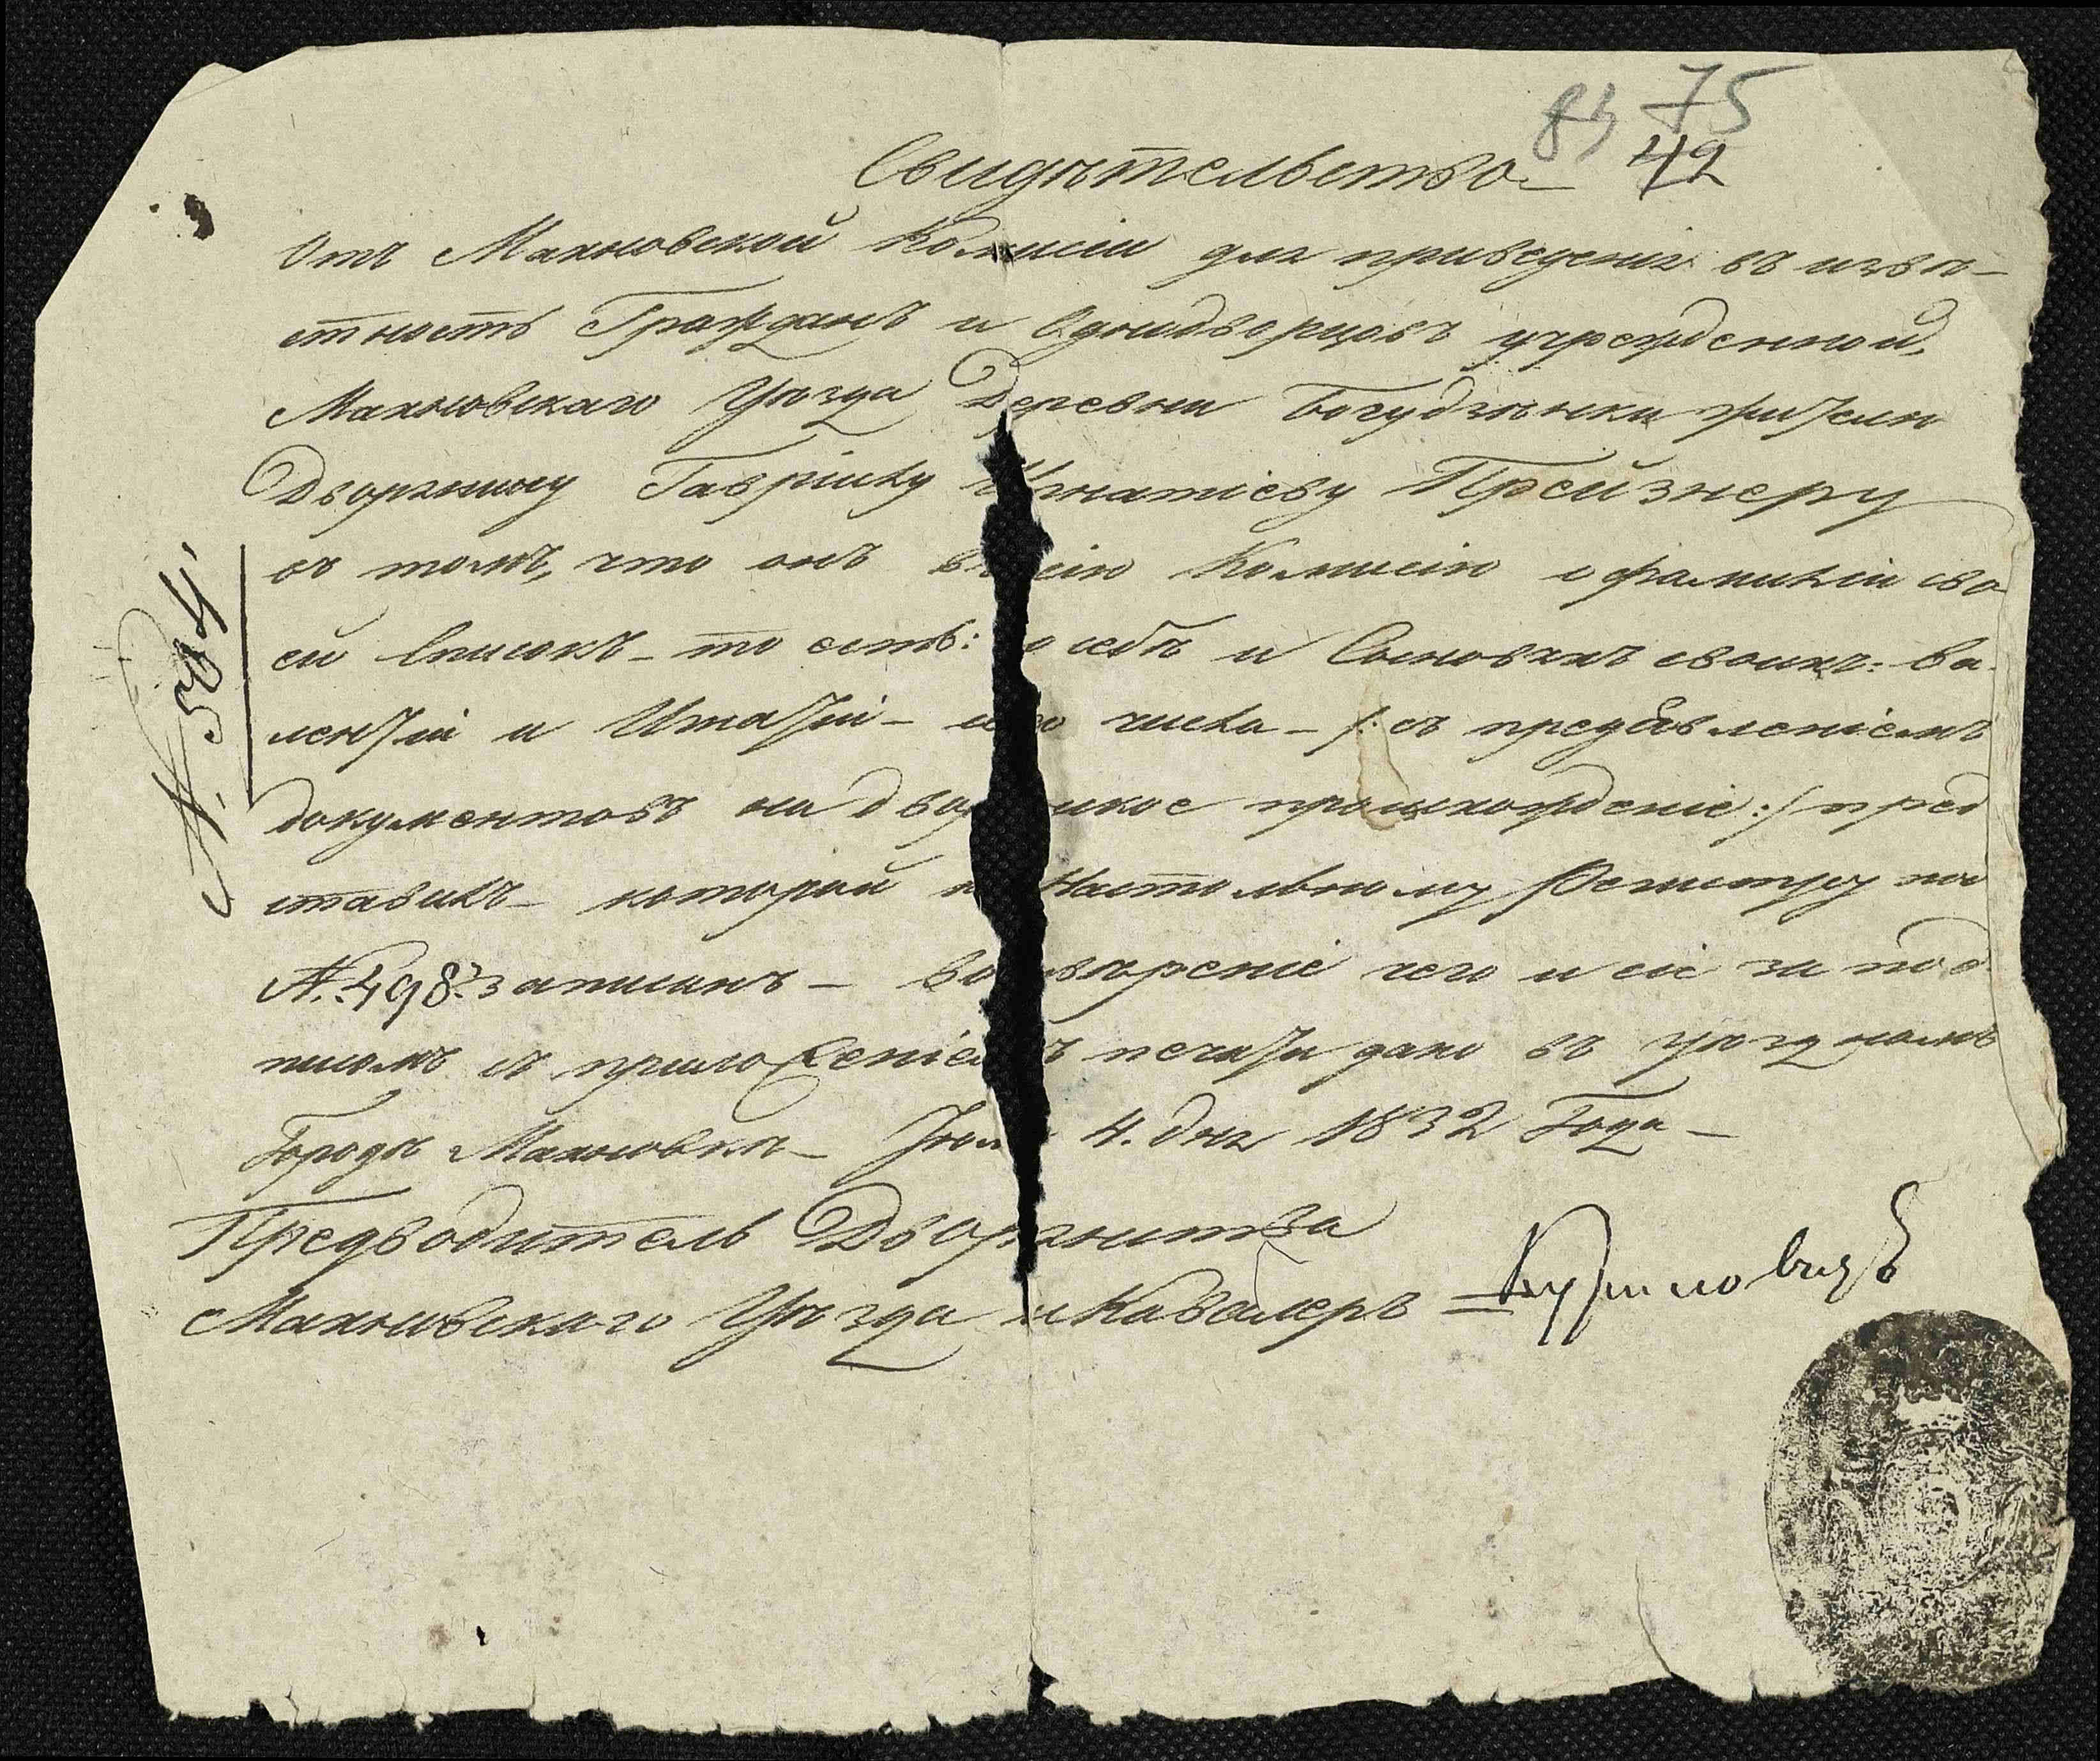 75
42
Свидѣтельство
Отъ Махновской Комисіи для приведенія въ извѣ-
стность Гражданъ и Однодворцовъ учрежденной,
Махновскаго Уѣзда Деревни жителю
Дворянину Гаврiилу Игнатіеву Прейзнеру
въ томъ, что онъ въ сію Комисію о фамиліи сво
ей Списокъ - то есть: о себѣ и Сыновяхъ своихъ: Ва-
лентіи и - числа - /: съ предъявленіемъ
документовъ на происхожденіе :/ пред
ставилъ - который Настольному Регистру по
№. 498: записанъ - чего и сіе за под
писомъ съ приложеніемъ печати дано въ уѣздномъ
Городѣ Махновкѣ - 4. дня 1832 Года -
Предводитель Дворянства
Махновскаго Уѣзда и Кавалеръ
№. 504.